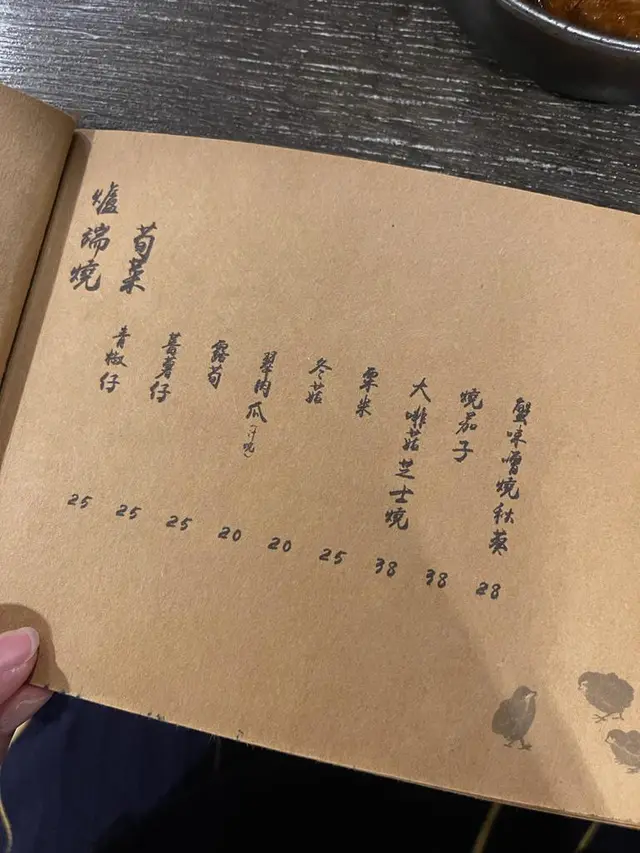 爐端燒
荀菜
青椒仔
25
蕃薯仔
25
露荀
25
翠肉瓜
20
冬菇
20
粟米
25
大啡菇芝士燒
38
燒茄子
38
蟹味噌燒秋葵
28